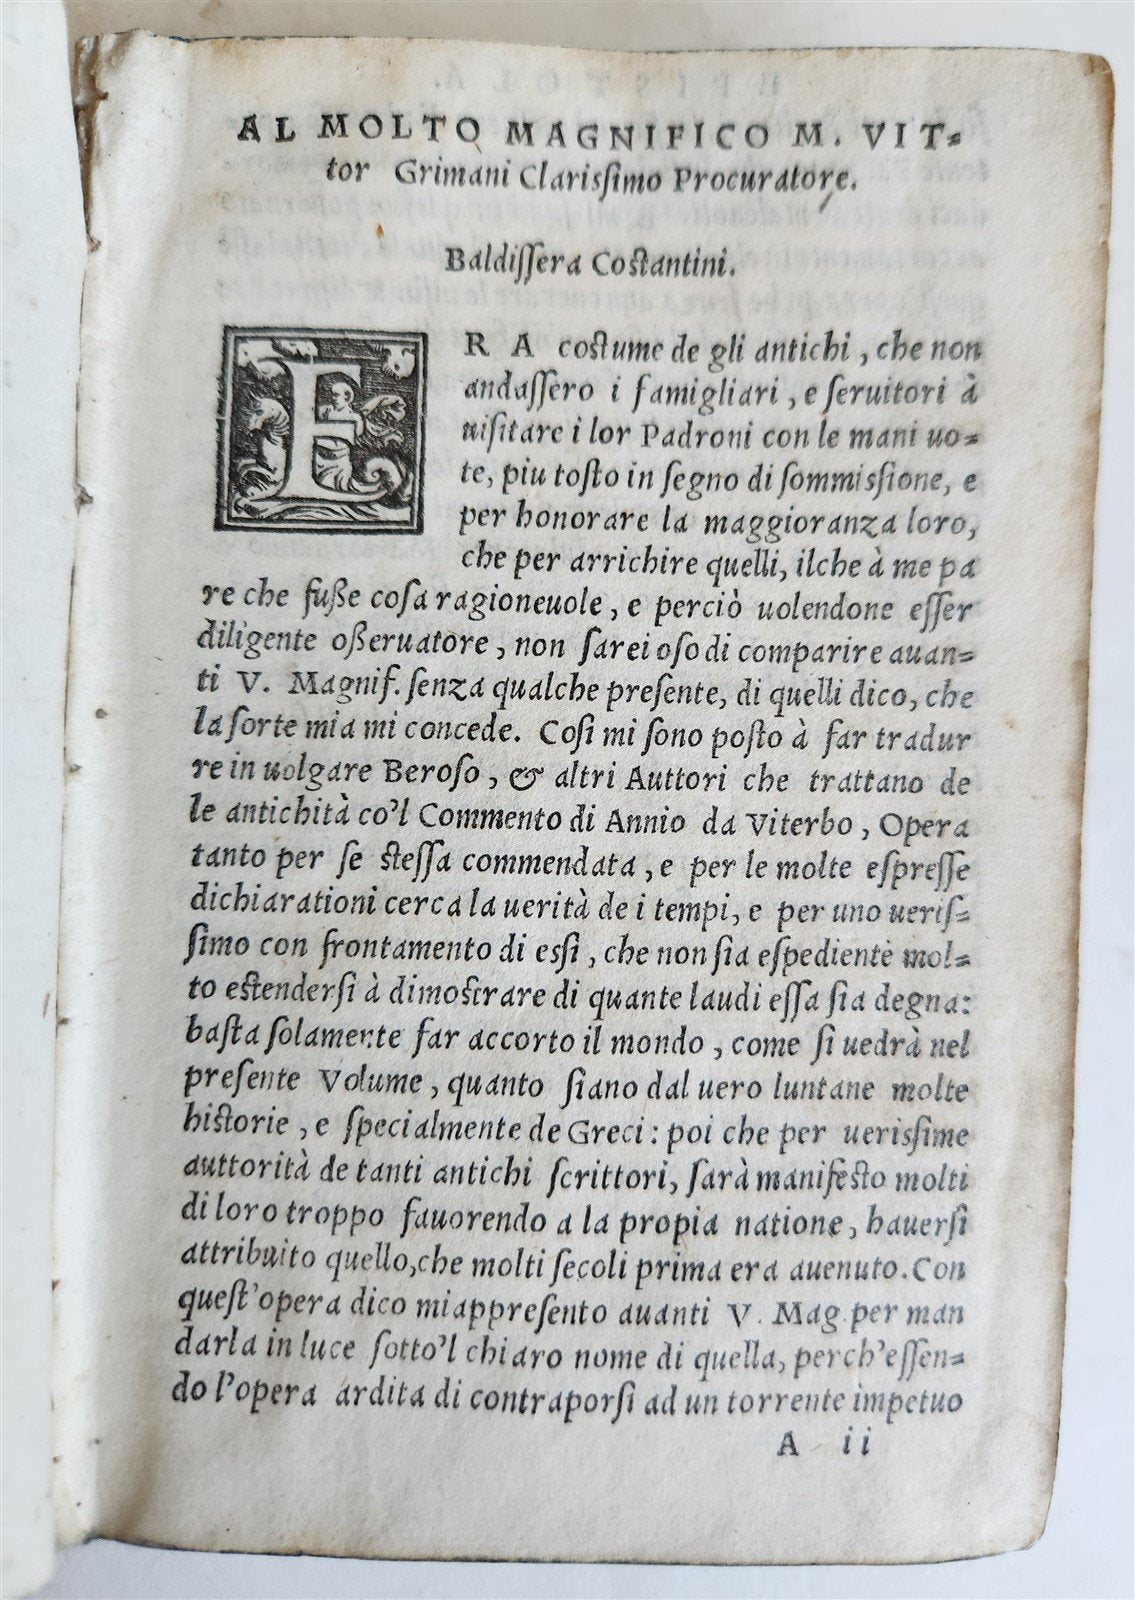 AL MOLTO MAGNIFICO M. VIT-
tor Grimani Clarissimo Procuratore.
Baldissera Costantini.
ERA costume de gli antichi, che non
andassero i famigliari, e seruitori à
uisitare i lor Padroni con le mani uo-
te, piu tosto in segno di sommissione, e
per honorare la maggioranza loro,
che per arrichire quelli, ilche à me pa
re che fuße cosa ragioneuole, e perciò uolendone esser
diligente oßeruatore, non sarei oso di comparire auan-
ti V. Magnif. senza qualche presente, di quelli dico, che
la sorte mia mi concede. Cosi mi sono posto à far tradur
re in uolgare Beroso, & altri Auttori che trattano de
le antichità co'l Commento di Annio da Viterbo, Opera
tanto per se stessa commendata, e per le molte espresse
dichiarationi cerca la uerità de i tempi, e per uno ueris-
simo con frontamento di essi, che non sia espediente mol-
to estendersi à dimostrare di quante laudi essa sia degna:
basta solamente far accorto il mondo, come si uedrà nel
presente Volume, quanto siano dal uero luntane molte
historie, e specialmente de Greci: poi che per uerissime
auttorità de tanti antichi scrittori, sarà manifesto molti
di loro troppo fauorendo a la propia natione, hauersi
attribuito quello, che molti secoli prima era auenuto. Con
quest'opera dico mi appresento auanti V. Mag. per man
darla in luce sotto'l chiaro nome di quella, perch'essen-
do l'opera ardita di contraporsi ad un torrente impetuo
A ii